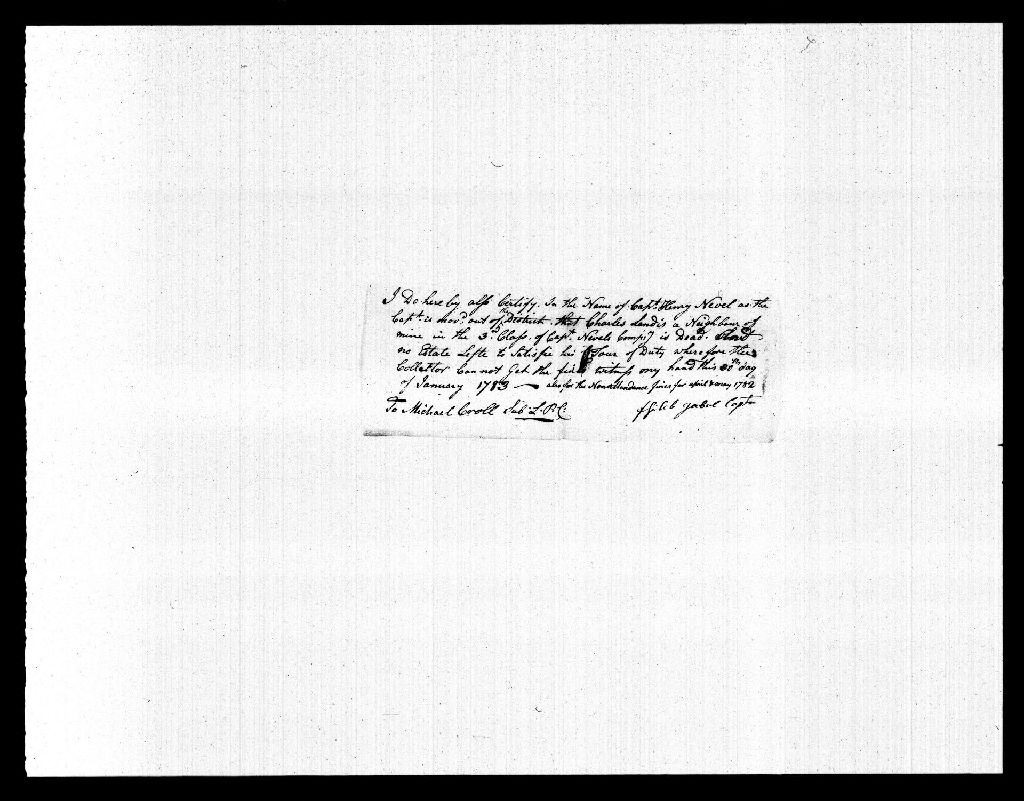 I Do here by also Certify. In the Name of Capt. Henry Nevel as the
Capt. is mov.d out of ye District. that Charles Landis a Neighbour of
mine in the 3.d Class. of Capt. Nevels Comp.y is Dead. And
no Estate Lefte to Satisfie his Tour of Duty wherefore the
Collettor Can not Get the fine witness my hand this 30th day
of January 1783 — also for the Nonattendance fines for april & may 1782
To Michael Croll Sub L. P. C.
Capt